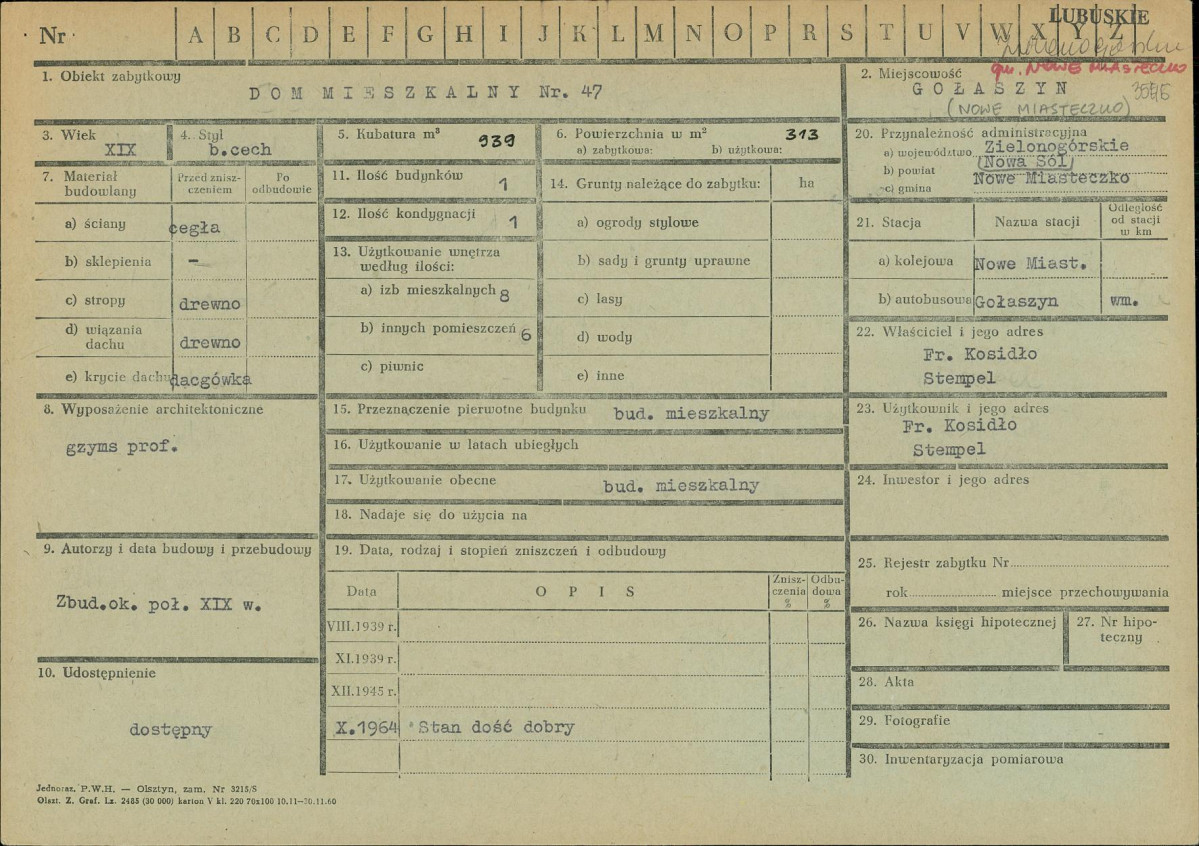 Nr
A B C D E F G H I J K L M N O P R S T U V W X Y Z
LUBUSKIE
gm. NOWE MIASTECZKO
1. Obiekt zabytkowy
DOM MIESZKALNY Nr. 47
2. Miejscowość
GOŁASZYN
(NOWE MIASTECZKO)
3. Wiek
XIX
4. Styl
b.cech
5. Kubatura m³
939
6. Powierzchnia w m²
313
a) zabytkowa: b) użytkowa:
7. Materiał budowlany
Przed znisz-
czeniem
Po
odbudowie
a) ściany cegła
b) sklepienia –
c) stropy drewno
d) wiązania
dachu drewno
e) krycie dachu dacgówka
11. Ilość budynków 1
12. Ilość kondygnacji 1
13. Użytkowanie wnętrza
według ilości:
a) izb mieszkalnych 8
b) innych pomieszczeń 6
c) piwnic
14. Grunty należące do zabytku: ha
a) ogrody stylowe
b) sady i grunty uprawne
c) lasy
d) wody
e) inne
20. Przynależność administracyjna
a) województwo Zielonogórskie
b) powiat (Nowa Sól)
c) gmina Nowe Miasteczko
21. Stacja
Nazwa stacji
Odległość
od stacji
w km
a) kolejowa Nowe Miast.
b) autobusowa Gołaszyn wm.
22. Właściciel i jego adres
Fr. Kosidło
Stempel
8. Wyposażenie architektoniczne
gzyms prof.
15. Przeznaczenie pierwotne budynku bud. mieszkalny
16. Użytkowanie w latach ubiegłych
17. Użytkowanie obecne bud. mieszkalny
18. Nadaje się do użycia na
23. Użytkownik i jego adres
Fr. Kosidło
Stempel
24. Inwestor i jego adres
9. Autorzy i data budowy i przebudowy
Zbud.ok. poł. XIX w.
19. Data, rodzaj i stopień zniszczeń i odbudowy
Data
OPIS
Znisz-
czenia
%
Odbu-
dowa
%
VIII.1939 r.
XI.1939 r.
XII.1945 r.
X.1964 Stan dość dobry
25. Rejestr zabytku Nr
rok miejsce przechowywania
26. Nazwa księgi hipotecznej
27. Nr hipo-
teczny
28. Akta
29. Fotografie
30. Inwentaryzacja pomiarowa
10. Udostępnienie
dostępny
Jednoraz. P.W.H. — Olsztyn, zam. Nr 3215/S
Olszt. Z. Graf. Lz. 2485 (30 000) karton V kl. 220 70x100 10.11—30.11.60